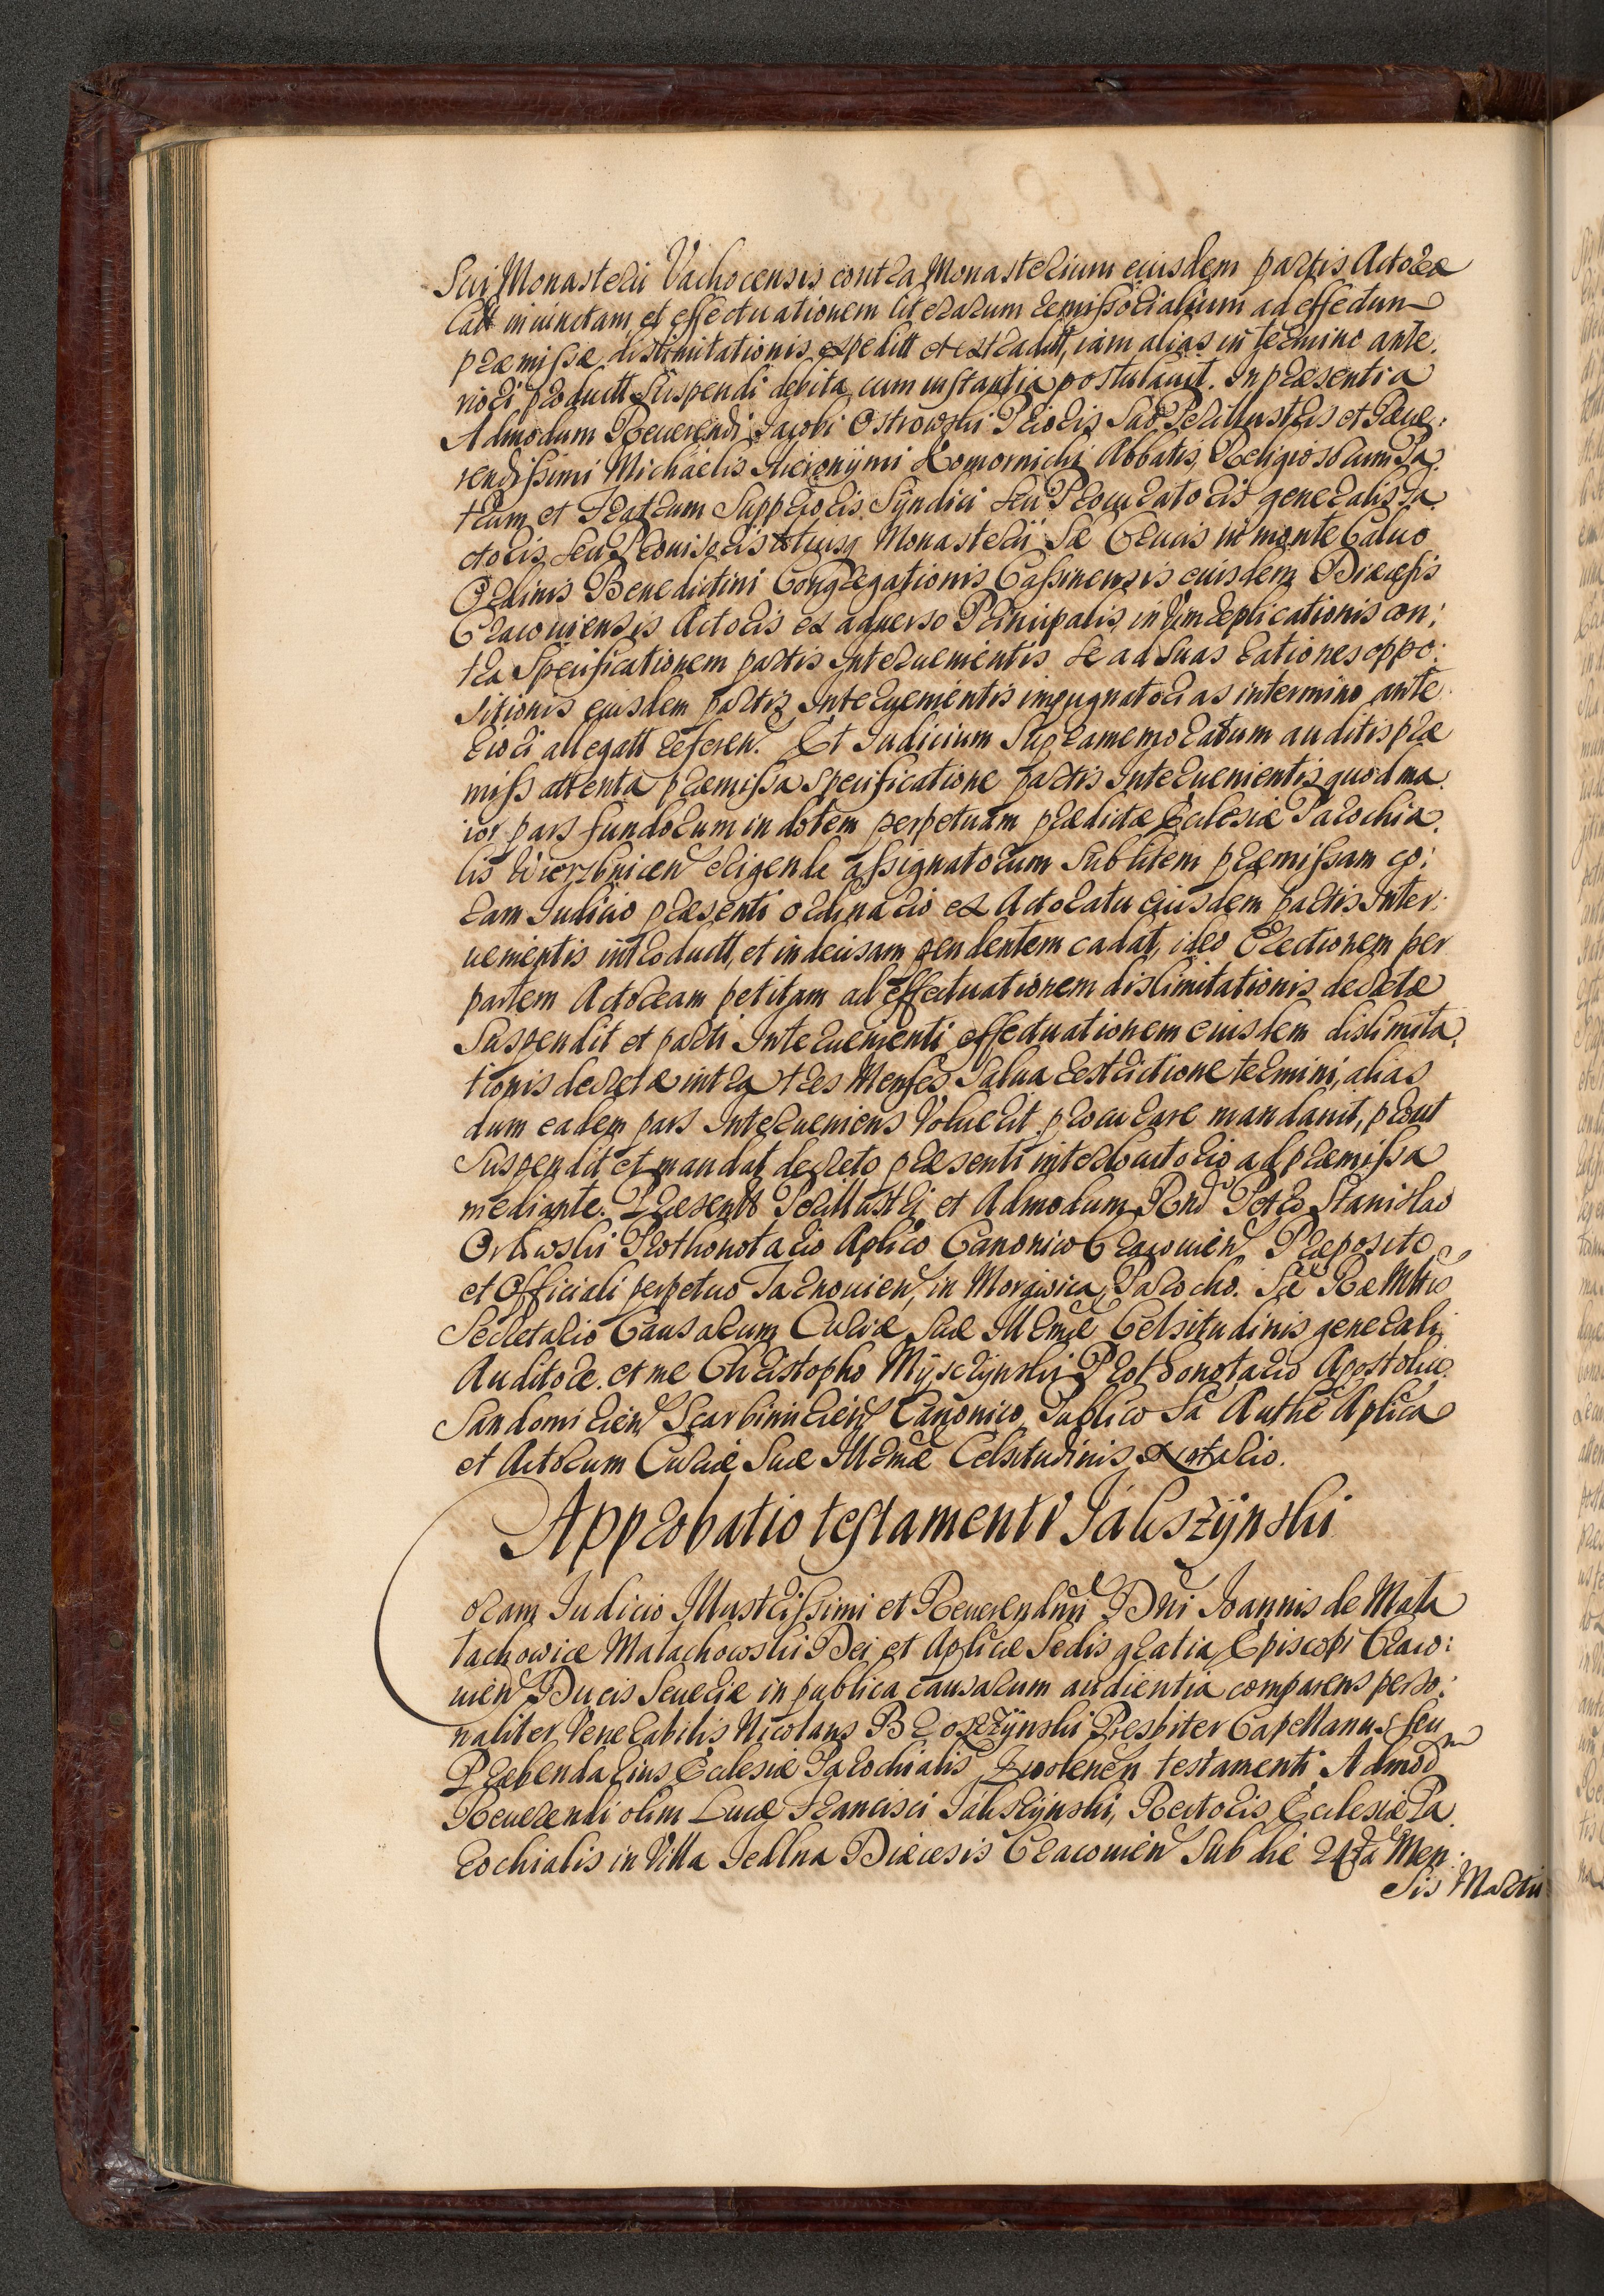 Sui Monasterii Vachocensis contra Monasterium eiusdem partis Actoreæ
latt iniunctam et effectuationem literarum remissorialium ad effectum
præmissæ dislimitationis expeditt et extraditt, iam alias in termino ante,
riori productt Suspendi debita cum instantia postulauit. In præsentia
Admodum Reuerendi Jacobi Ostrowski Prioris Sub Perillustris et Reue:
rendissimi Michäelis Hieronÿmi Komornicki Abbatis, Religiosorum Pa,
trum et Fratrum Supprioris Sÿndici seu Procuratoris generalis Ja,
ctoris seu Prouisoris totiusq Monasterÿ Sæ Crucis in monte Caluo
Ordinis Benedictini Congregationis Cassinensis eiusdem Diæcesis
Cracouiensis Actoris ex aduerso Principalis, in Vim replicationis con:
tra Specificationem partis Interuenientis se ad suas rationes oppo:
sitionis eiusdem partis Interuenientis impugnatorias in termino ante
riori allegatt referen. Et Iudicium Supramemoratum auditis præ
miss attenta præmissa Specificatione partis Interuenientis quod ma
ior pars fundorum in dotem perpetuam prædictæ Ecclesiæ Parochia,
lis Wierzbnicen erigendæ assignatorum Sub litem præmissam co:
ram Iudicio præsenti ordinario ex Actoratu eiusdem partis Inter:
uenientis introductt, et indecisam pendentem cadat, ideo Erectionem per
partem Actoream petitam ad effectuationem dislimitationis decretæ
Suspendit et parti Interuenienti effectuationem eiusdem dislimita,
tionis decretæ intra tres Menses Salua restrictione termini, alias
dum eadem pars Interueniens Voluerit procurare mandauit, prout
Suspendit et mandat decreto præsenti interlocutorio ad præmissa
mediante. Præsentt Perillustri et Admodum Rndo Petro Stanislao
Orłowski Prothonotario Aplico Canonico Cracouien Præposito
et Officiali perpetuo Tarnouien, in Morawica Parocho. Sæ Ræ Mttis
Secretario Causarum Curiæ Suæ Illrmæ Celsitudinis generali
Auditore. et me Christopho Mÿsczÿnski Prothonotario Apostolic
Sandomirien Scarbimirien Canonico, Publico Sa Authe Aplica
et Actorum Curiæ Suæ Illrmæ Celsitudinis Notario.
Approbatio testamenti Jaliszÿnski
Coram Iudicio Illustrissimi et Reuerendmi Dni Ioannis de Mała
łachowice Małachowski Dei et Aplicæ Sedis gratia Episcopi Craco:
uien Ducis Seueriæ in publica causarum audientia comparens perso:
naliter Venerabilis Nicolaus Brozczÿnski Presbiter Capellanus seu
Præbendarius Ecclesiæ Parochialis Zwolenen testamenti Admodm
Reuerendi olim Lucæ Francisci Jaliszÿnski, Rectoris Ecclesiæ Pa,
rochialis in Villa Jedlna Diæcesis Cracouien Sub die 24ta Men:
sis Martii